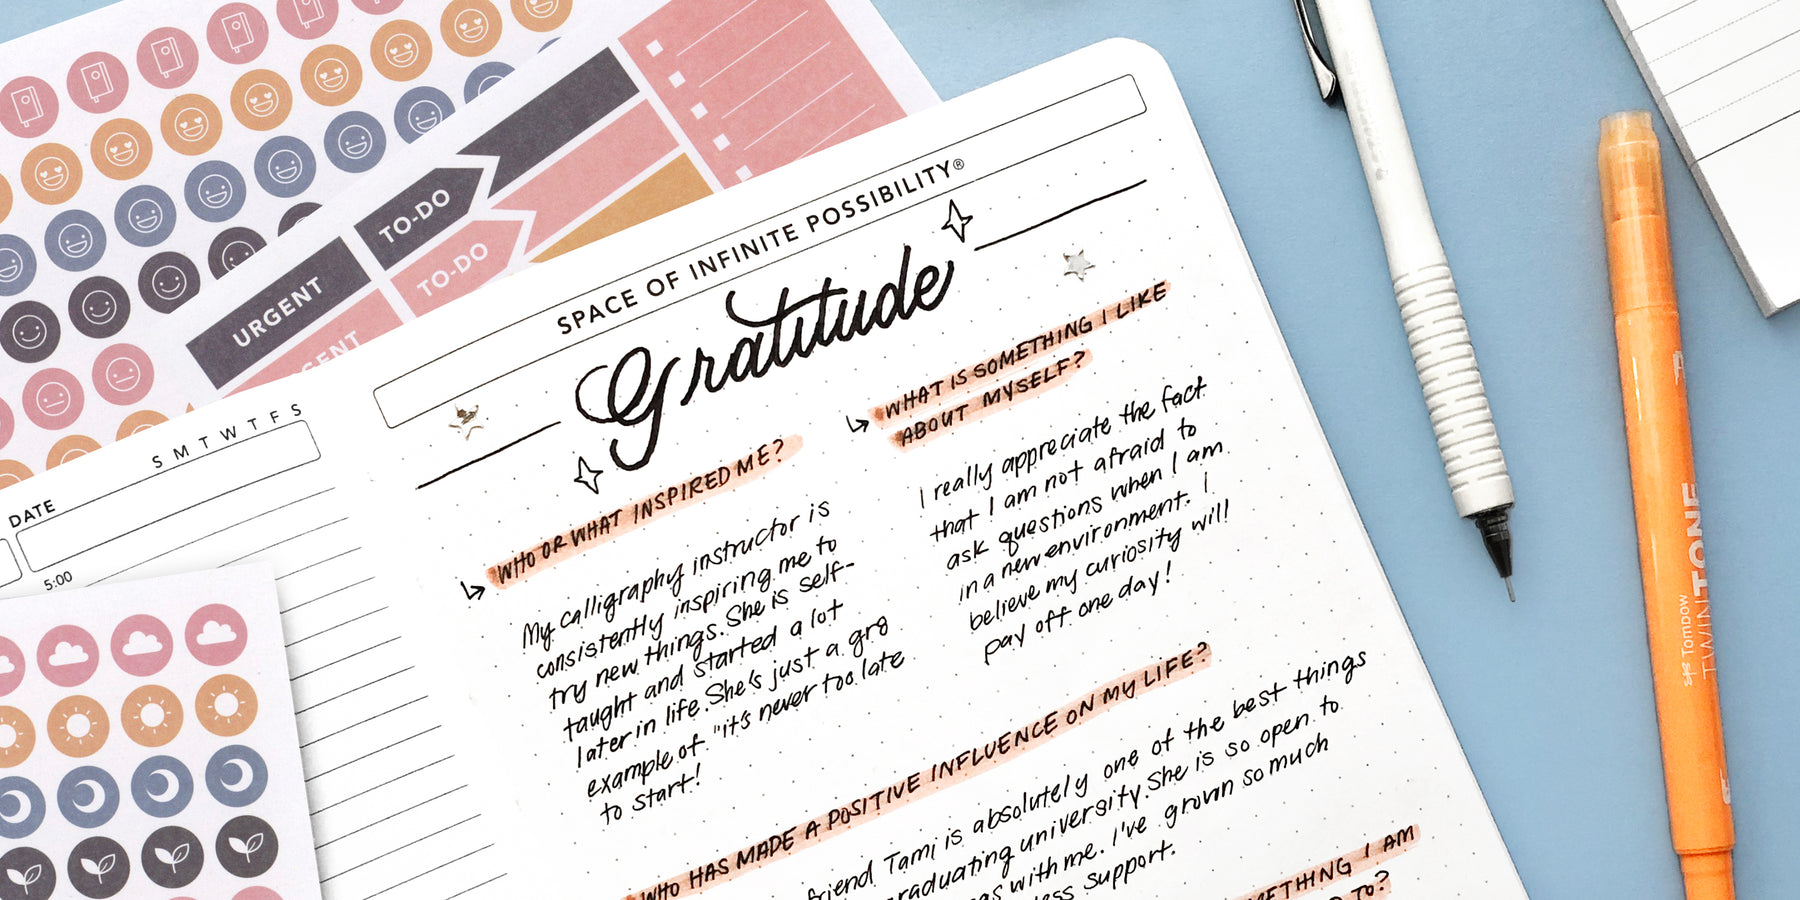 TO-DO
TO-DO
URGENT
SPACE OF INFINITE POSSIBILITY®
Gratitude
S M T W T F S
DATE
5:00
WHO OR WHAT INSPIRED ME?
My calligraphy instructor is
consistently inspiring me to
try new things. She is self-
taught and started a lot
later in life. She's just a gr8
example of "it's never too late
to start!
WHAT IS SOMETHING I LIKE
ABOUT MYSELF?
I really appreciate the fact
that I am not afraid to
ask questions when I am
in a new environment. I
believe my curiosity will
pay off one day!
WHO HAS MADE A POSITIVE INFLUENCE ON MY LIFE?
friend Tami is absolutely one of the best things
graduating university. She is so open to
with me. I've grown so much
support.
I AM
TO?
Tombow
TWINTONE